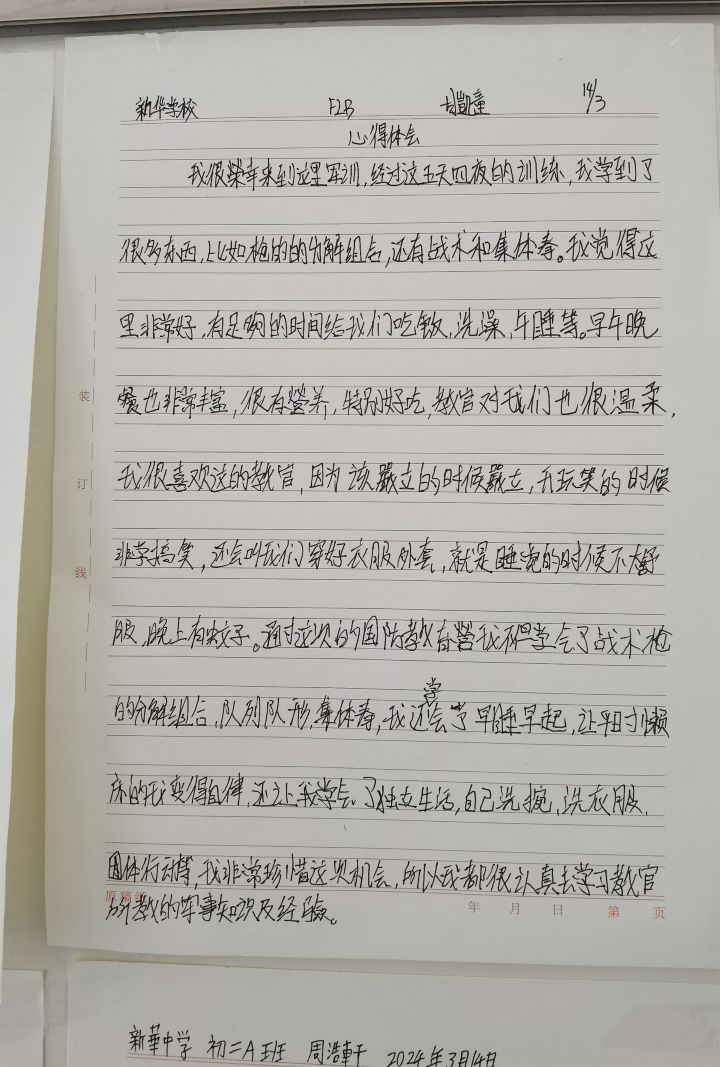 新华学校 F2B 胡凱童 14/3
心得体会
我很榮幸来到这里军训，经过这五天四夜的训练，我学到了
很多东西，比如枪的的分解组合，还有战术和集体拳。我觉得这
里非常好，有足够的时间给我们吃飯，洗澡，午睡等。早午晚
餐也非常丰富，很有营养，特别好吃，教官对我们也很温柔，
装
我很喜欢这的教官，因为该嚴立的时候嚴立，开玩笑的时候
订
非常搞笑，还会叫我们穿好衣服外套，就是睡觉的时候不太舒
线
服，晚上有蚊子。通过这次的国防教育营我不但学会了战术枪
的分解组合，队列队形，集体拳，我还学会了早睡早起，让平时懒
床的我变得自律，还让我学会了独立生活，自己洗碗，洗衣服，
团体行动等，我非常珍惜这次机会，所以我都很认真去学习教官
原稿纸 年 月 日 第 页
所教的军事知识及经验。
新華中学 初二A班 周浩軒 2024年3月14日